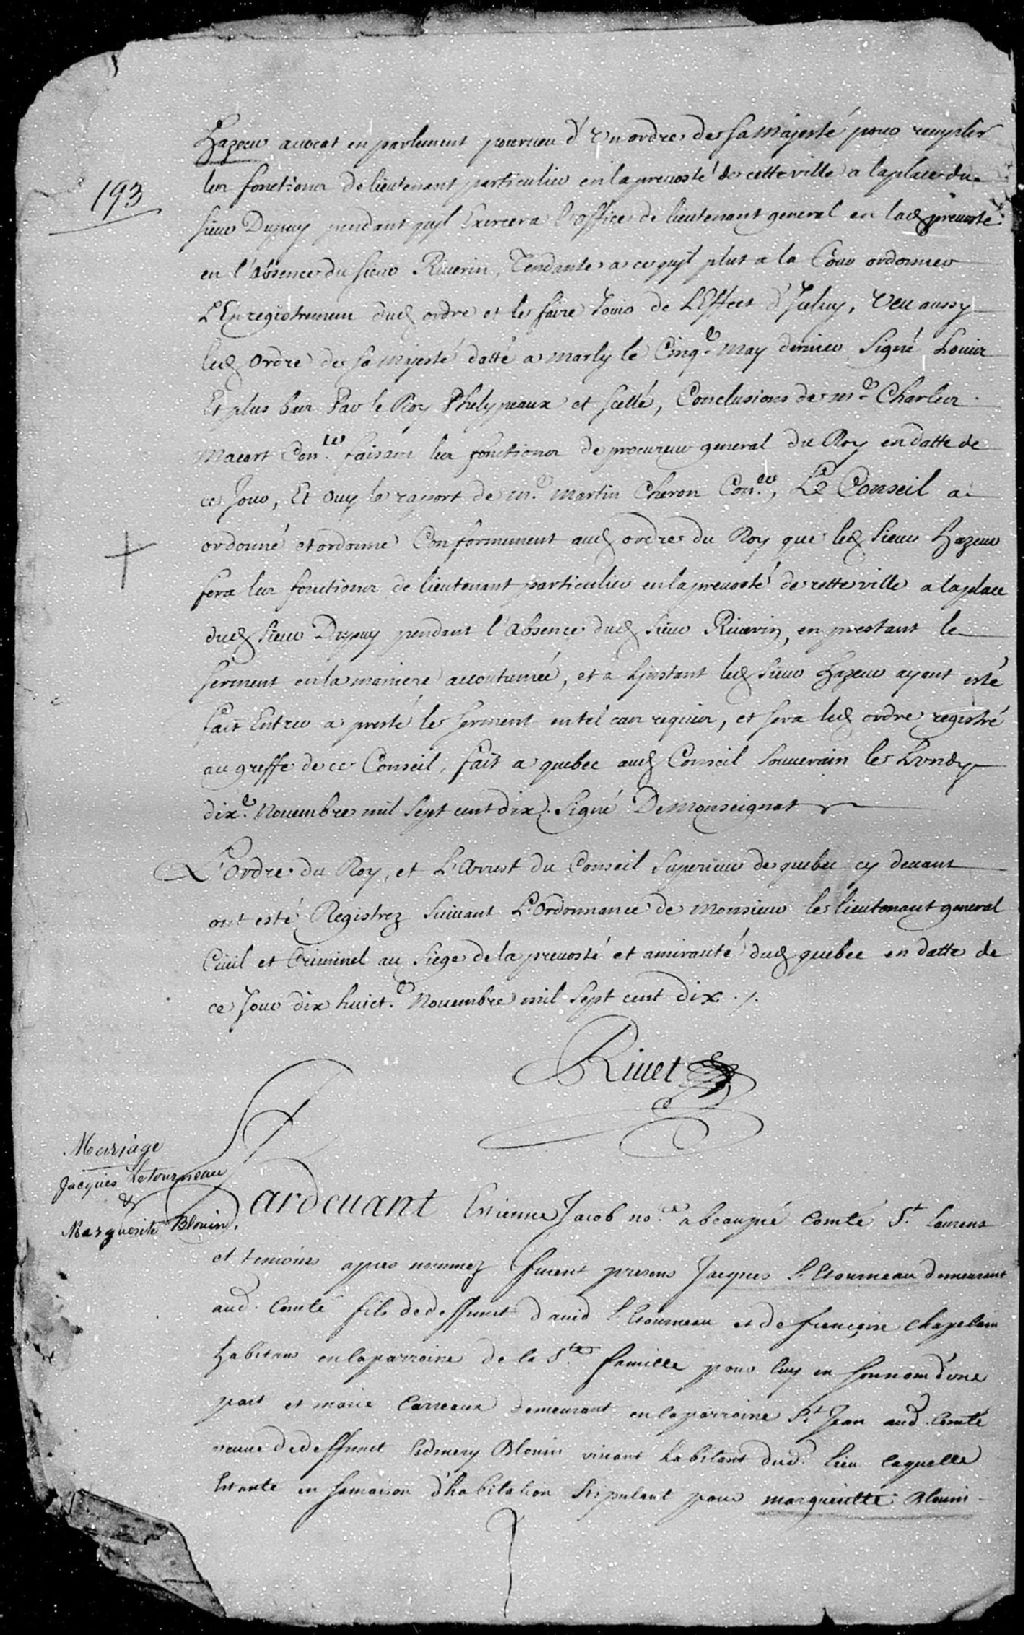 193
Hazeur auocat en parlement pourueu d'Vn ordre de sa Majesté pour remplir
les fonctions de lieutenant particulier en la preuosté de cette ville a la place du
sieur Dupuy pendant quyl Exercera l'office de lieutenant general en lad preuosté
en l'absence du sieur Riuerin, Tendante a ce quyl plut a la Cour ordonner
L'Enregistrement dud ordre et le faire Jouir de L'Effect d'Jceluy, Veu aussy
led Ordre de sa Majesté datté a Marly le Cinqe May dernier Signé Louis
Et plus bas Par le Roy Phelypeaux et scellé, Conclusions de Me Charles
Macart Coner faisant les fonctions de procureur general du Roy en datte de
ce Jour, Et Ouy le raport de Me Martin Cheron Coner, Le Conseil a
ordonné et ordonne Conformement aud ordre du Roy que led Sieur Hazeur
fera les fonctions de lieutenant particulier en la preuosté de cette ville a la place
dud sieur Dupuy pendant l'absence dud sieur Riuerin, en prestant le
serment en la maniere accoutumée, et a L'jnstant led sieur Hazeur ayant esté
fait Entrer a presté le serment en tel cas requis, et sera led ordre registré
au greffe de ce Conseil, fait a quebec aud Conseil Souuerain le Lundy
dixe Nouembre mil sept cent dix. Signé DeMonseignat
L'Ordre du Roy, et L'Arrest du Conseil Superieur de quebec cy deuant
ont esté Registrez Suiuant L'Ordonnance de Monsieur le lieutenant general
Ciuil et Criminel au Siege de la preuosté et amirauté dud quebec en datte de
ce Jour dix huicte Nouembre mil sept cent dix ./.
Riuet
Mariage
Jacques Letourneau
&
Marguerite Blouin.
Pardeuant Estienne Jacob nore a beaupré Comté St Laurens
et temoins apres nommez furent presens Jacques Letourneau demeurant
aud. Comté fils de deffunct dauid Letourneau et de francoise Chapelain
habitans en la parroisse de la Ste famille pour luy en son nom d'une
part et marie Carreau demeurant en la parroisse St Jean aud. Comté
veuue de deffunct Esmery Blouin viuant habitant dud. lieu laquelle
Estante en sa maison d'habitation stipulant pour margueritte Blouin